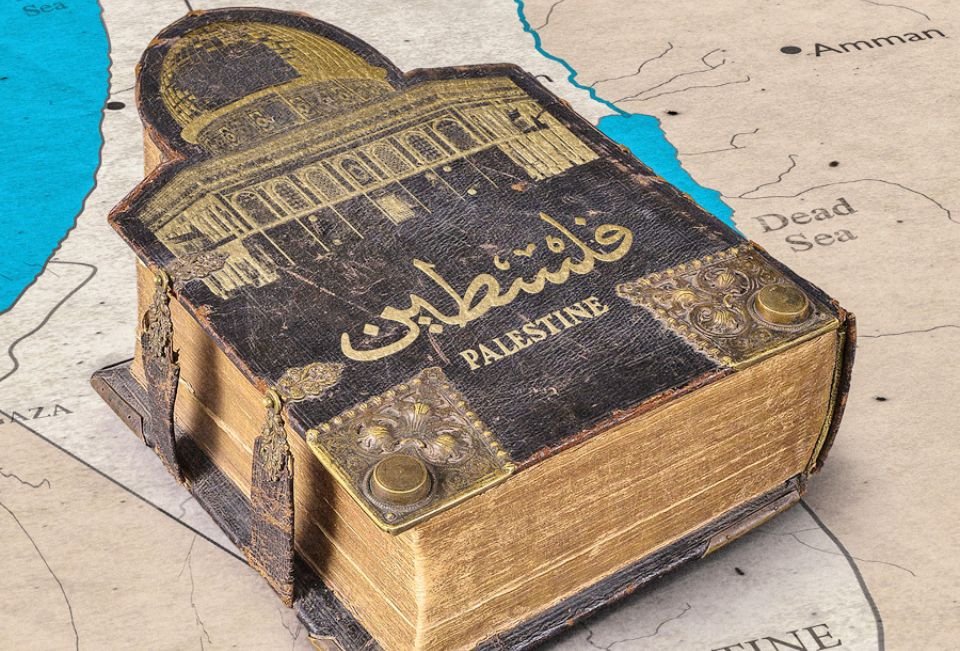 Sea
Amman
Dead
Sea
فلسطين
PALESTINE